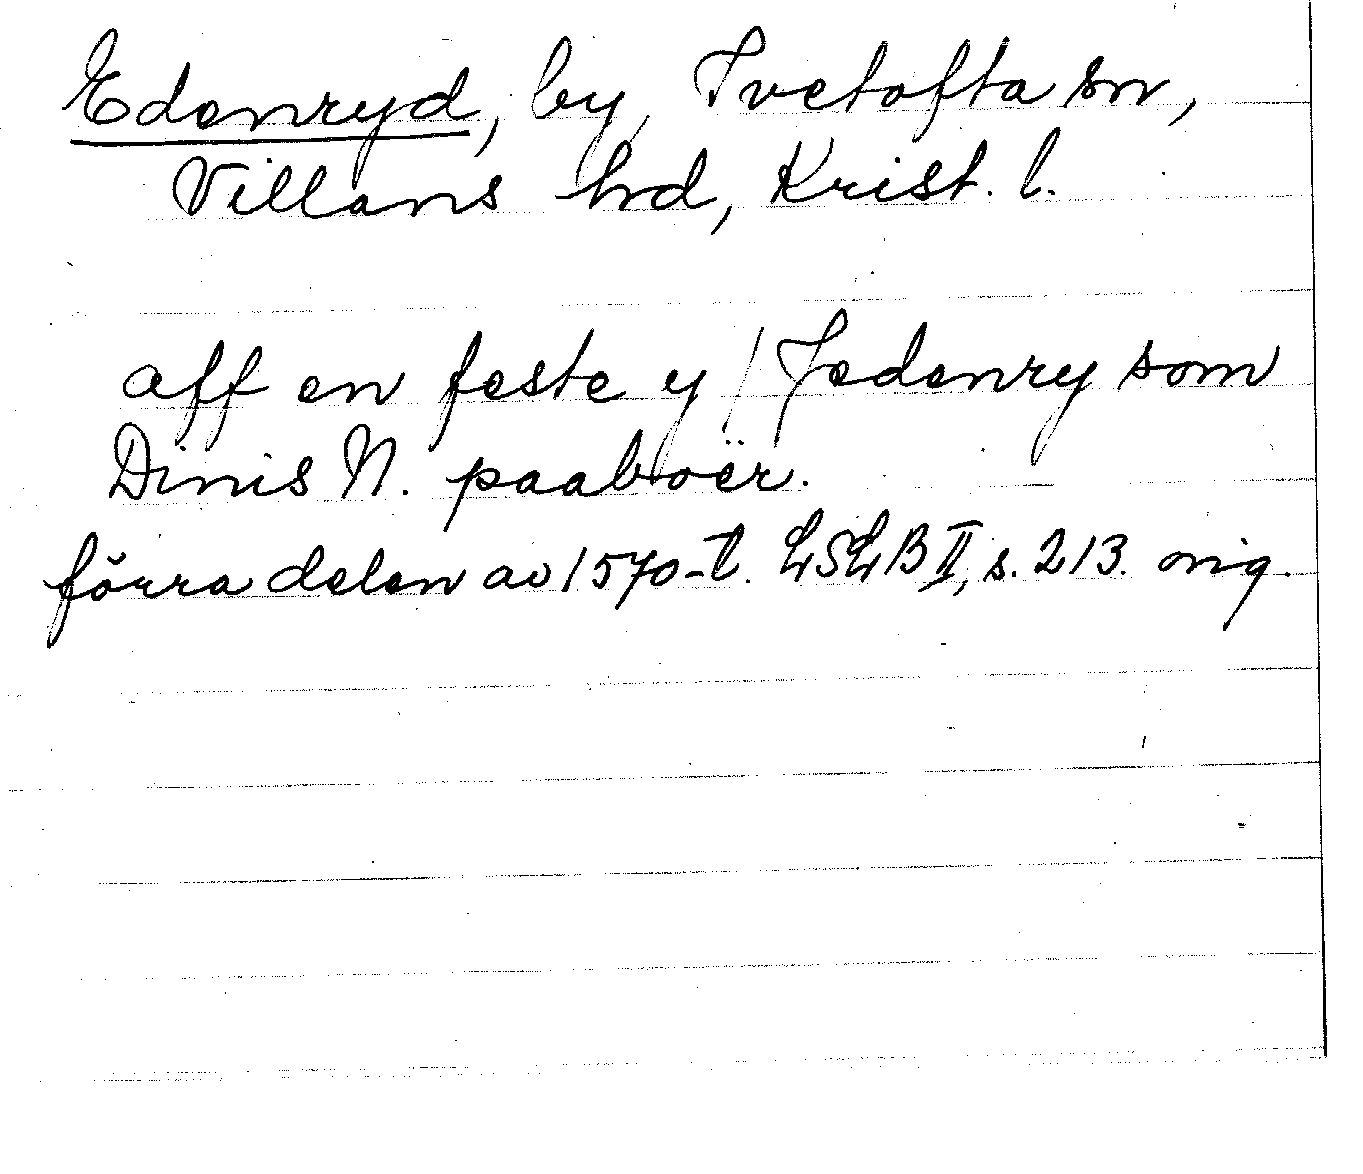 Edenryd, by, Ivetofta sn,
Villans hrd, Krist. l.
aff en feste y / Jedenry som
Dinis N. paaboër.
förra delen av 1570-t. LSLB II, s. 213. orig.